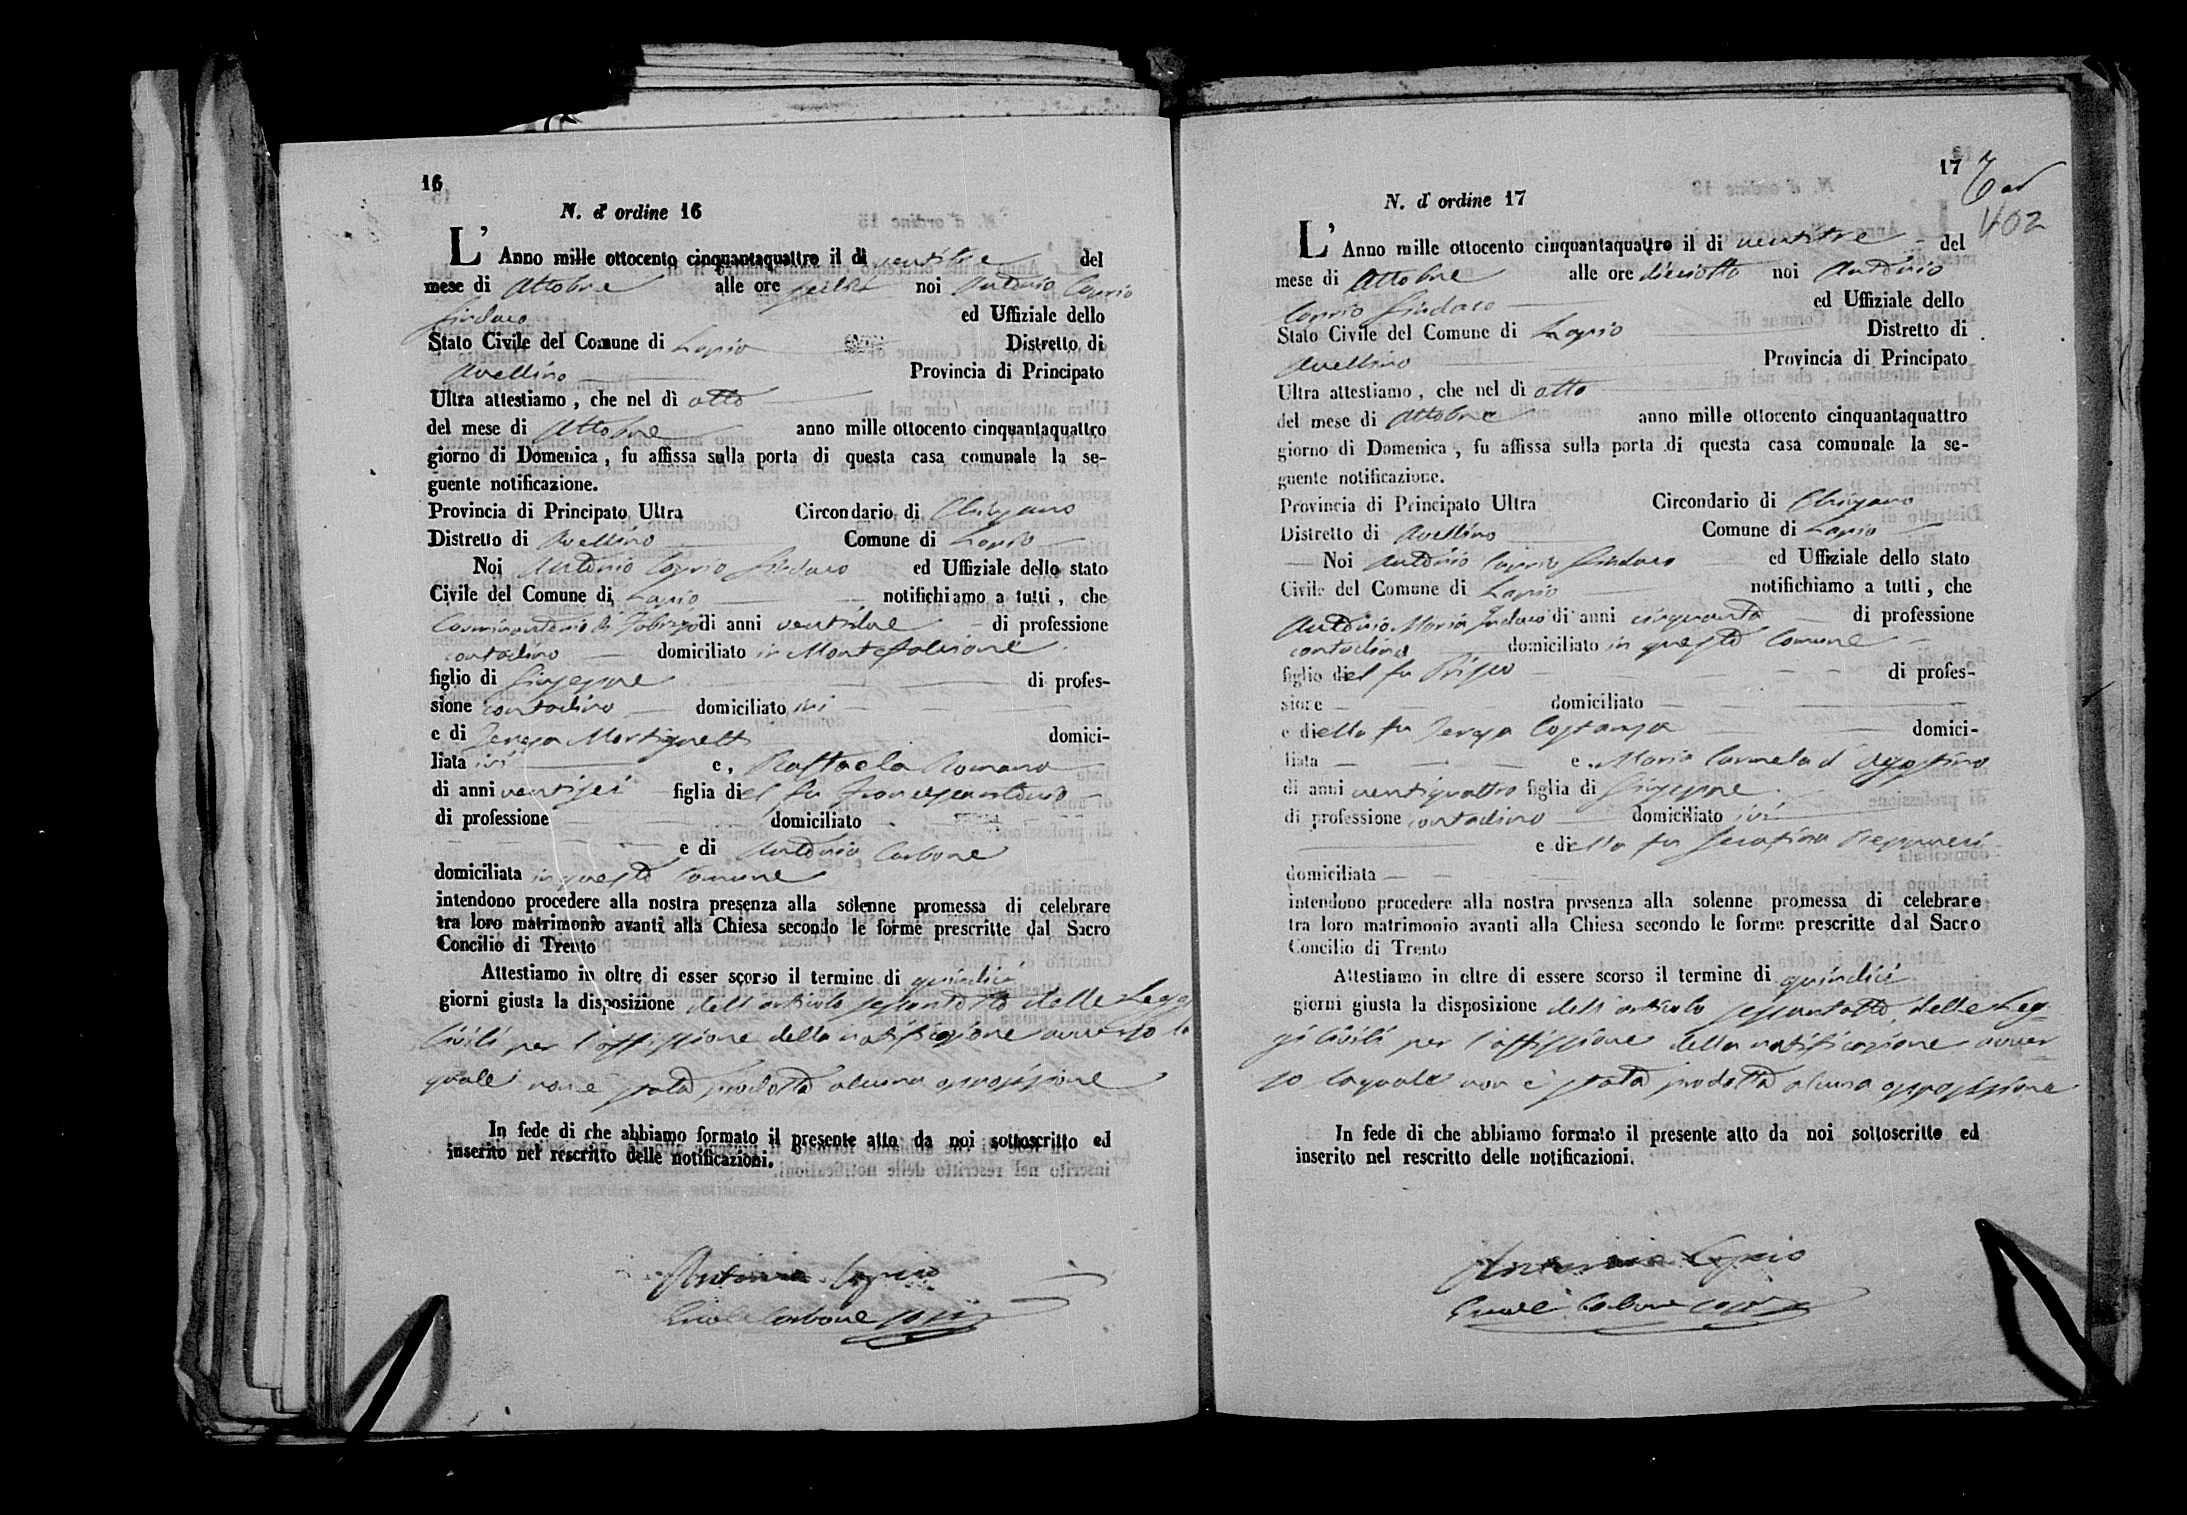 16
N. d' ordine 16
L' Anno mille ottocento cinquantaquattro il dì ventitre del
mese di Ottobre alle ore noi Antonio Caprio
Sindaco ed Uffiziale dello
Stato Civile del Comune di Lapio Distretto di
Avellino Provincia di Principato
Ultra attestiamo , che nel dì otto
del mese di Ottobre anno mille ottocento cinquantaquattro
giorno di Domenica , fu affissa sulla porta di questa casa comunale la se-
guente notificazione.
Provincia di Principato Ultra Circondario di Chiusano
Distretto di Avellino Comune di Lapio
Noi Antonio Caprio Sindaco ed Uffiziale dello stato
Civile del Comune di Lapio notifichiamo a tutti , che
Carminantonio di Fabrizio di anni ventidue di professione
contadino domiciliato in Montefalcione
figlio di Giuseppe di profes-
sione contadino domiciliato ivi
e di Teresa Martignetti domici-
liata ivi e, Raffaela Romano
di anni ventisei figlia del fu Francescantonio
di professione domiciliato
e di Antonia Carbone
domiciliata in questo Comune
intendono procedere alla nostra presenza alla solenne promessa di celebrare
tra loro matrimonio avanti alla Chiesa secondo le forme prescritte dal Sacro
Concilio di Trento
Attestiamo in oltre di esser scorso il termine di quindici
giorni giusta la disposizione dell'articolo sessantotto delle Leggi
Civili per l'affissione della notificazione avverso la
quale non è stata prodotta alcuna opposizione
In fede di che abbiamo formato il presente atto da noi sottoscritto ed
inserito nel rescritto delle notificazioni.
Antonio Caprio
Ercole Carbone
17
402
N. d' ordine 17
L' Anno mille ottocento cinquantaquattro il di ventitre del
mese di Ottobre alle ore dieciotto noi Antonio
Caprio Sindaco ed Uffiziale dello
Stato Civile del Comune di Lapio Distretto di
Avellino Provincia di Principato
Ultra attestiamo , che nel dì otto
del mese di Ottobre anno mille ottocento cinquantaquattro
giorno di Domenica , fu affissa sulla porta di questa casa comunale la se-
guente notificazione.
Provincia di Principato Ultra Circondario di Chiusano
Distretto di Avellino Comune di Lapio
Noi Antonio Caprio Sindaco ed Uffiziale dello stato
Civile del Comune di Lapio notifichiamo a tutti , che
Antonio Maria di anni cinquanta di professione
contadino domiciliato in questo Comune
figlio del fu Prisco di profes-
sione domiciliato
e della fu Teresa Costanza domici-
liata e. Maria Carmela d'Agostino
di anni ventiquattro figlia di Giuseppe
di professione contadino domiciliato ivi
e della fu Serafina
domiciliata
intendono procedere alla nostra presenza alla solenne promessa di celebrare
tra loro matrimonio avanti alla Chiesa secondo le forme prescritte dal Sacro
Concilio di Trento
Attestiamo in oltre di essere scorso il termine di quindici
giorni giusta la disposizione dell'articolo sessantotto delle Leg-
gi Civili per l'affissione della notificazione avver
so la quale non è stata prodotta alcuna opposizione
In fede di che abbiamo formato il presente atto da noi sottoscritto ed
inserito nel rescritto delle notificazioni.
Antonio Caprio
Ercole Carbone